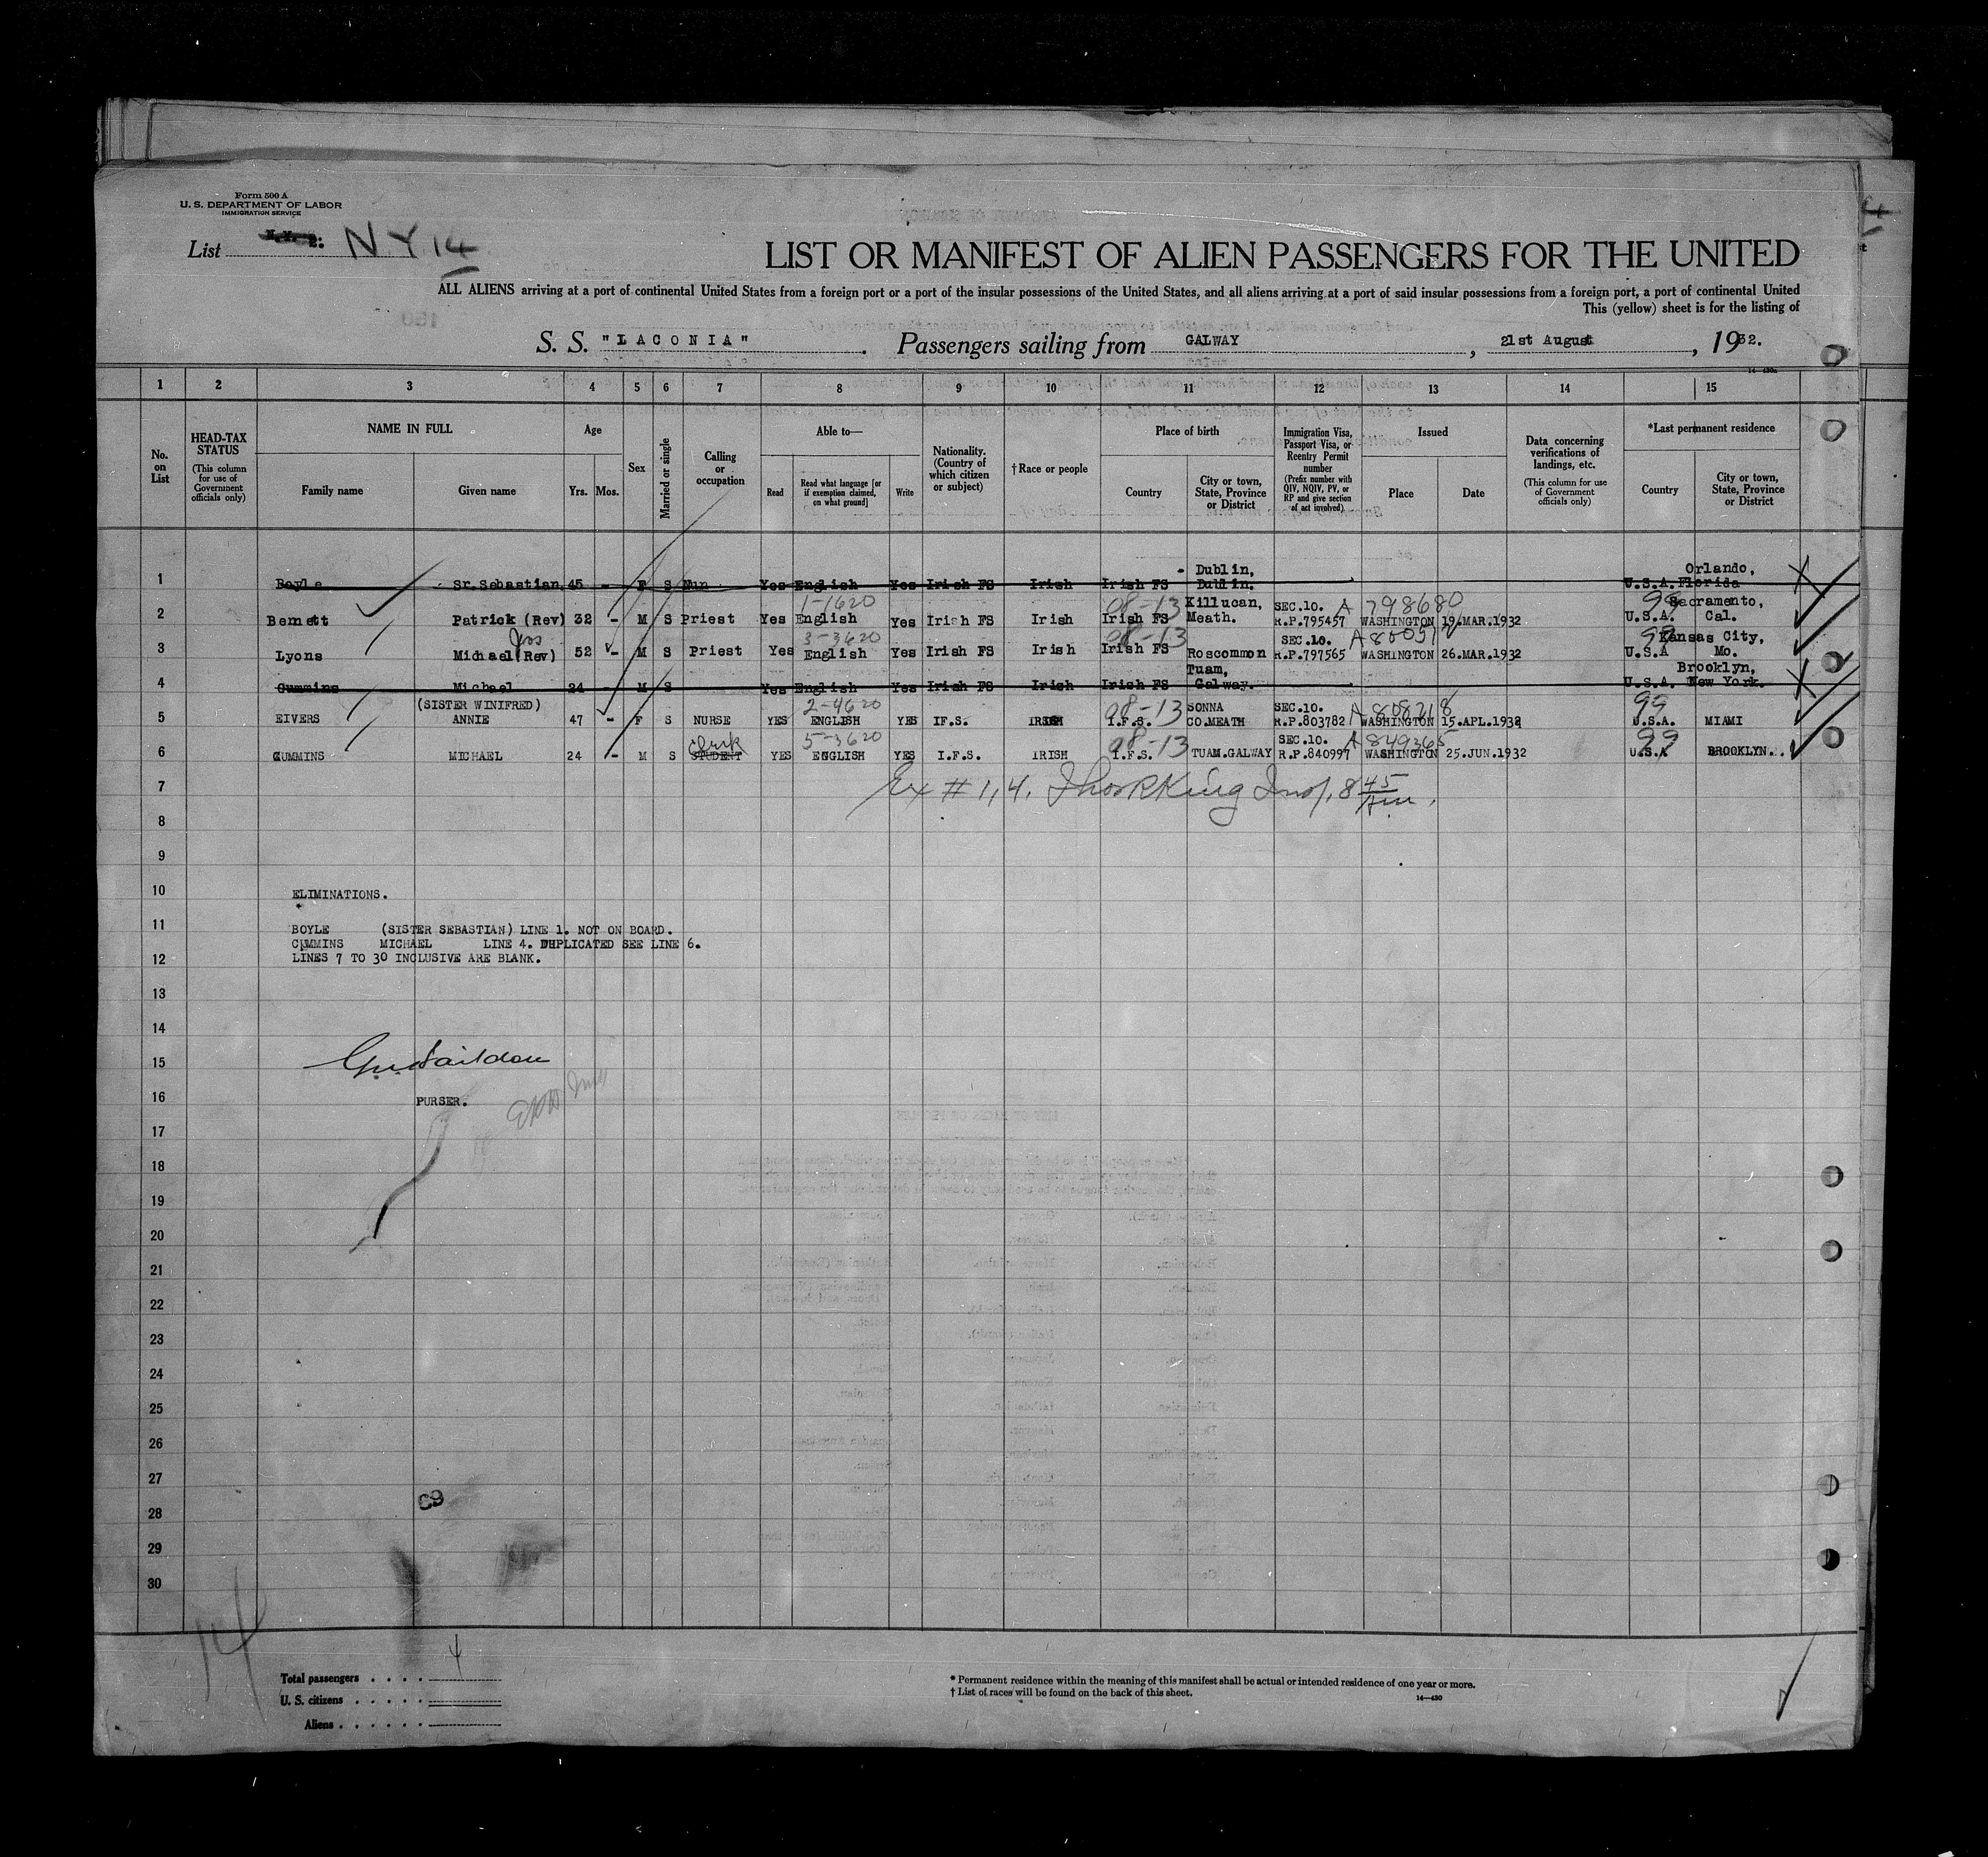 Form 500 A
U. S. DEPARTMENT OF LABOR
IMMIGRATION SERVICE
List N.Y. 2: NY 14
LIST OR MANIFEST OF ALIEN PASSENGERS FOR THE UNITED
ALL ALIENS arriving at a port of continental United States from a foreign port or a port of the insular possessions of the United States, and all aliens arriving at a port of said insular possessions from a foreign port, a port of continental United
This (yellow) sheet is for the listing of
S. S. "LACONIA". Passengers sailing from GALWAY, 21st August, 1932.
14—430a
1 2 3 4 5 6 7 8 9 10 11 12 13 14 15
No. on List
HEAD-TAX STATUS (This column for use of Government officials only)
NAME IN FULL Family name Given name
Age Yrs. Mos.
Sex
Married or single
Calling or occupation
Able to— Read Read what language [or if exemption claimed, on what ground] Write
Nationality. (Country of which citizen or subject)
†Race or people
Place of birth Country City or town, State, Province or District
Immigration Visa, Passport Visa, or Reentry Permit number (Prefix number with QIV, NQIV, PV, or RP and give section of act involved)
Issued Place Date
Data concerning verifications of landings, etc. (This column for use of Government officials only)
*Last permanent residence Country City or town, State, Province or District
1 Boyle Sr.Sebastian 45 - F S Nun Yes English Yes Irish FS Irish Irish FS Dublin, Dublin. U.S.A. Orlando, Florida
1-1620 08-13 A 798680 99
2 Bennett Patrick (Rev) 32 - M S Priest Yes English Yes Irish FS Irish Irish FS Killucan, Meath. SEC.10. R.P.795457 WASHINGTON 19.MAR.1932 U.S.A. Sacramento, Cal.
Jos 3-3620 08-13 99
3 Lyons Michael (Rev) 52 - M S Priest Yes English Yes Irish FS Irish Irish FS Roscommon SEC.10. R.P.797565 WASHINGTON 26.MAR.1932 U.S.A Kansas City, Mo.
4 Cummins Michael 24 - M S Yes English Yes Irish FS Irish Irish FS Tuam, Galway. U.S.A. Brooklyn, New York.
2-4620 08-13 A 808218 99
5 EIVERS (SISTER WINIFRED) ANNIE 47 - F S NURSE YES ENGLISH YES IF.S. IRISH I.F.S. SONNA CO.MEATH SEC.10. R.P.803782 WASHINGTON 15.APL.1932 U.S.A. MIAMI
Clerk 5-3620 08-13 A 849365 99
6 CUMMINS MICHAEL 24 - M S STUDENT YES ENGLISH YES I.F.S. IRISH I.F.S. TUAM.GALWAY SEC.10. R.P.840997 WASHINGTON 25.JUN.1932 U.S.A BROOKLYN.
7 Ex # 1, 4. King Insp. 8 45 am.
8
9
10 ELIMINATIONS.
11 BOYLE (SISTER SEBASTIAN) LINE 1. NOT ON BOARD.
CUMMINS MICHAEL LINE 4. DUPLICATED SEE LINE 6.
12 LINES 7 TO 30 INCLUSIVE ARE BLANK.
13
14
15
16 PURSER.
17
18
19
20
21
22
23
24
25
26
27
28
29
30
14
Total passengers . . . . 4
U. S. citizens . . . . .
Aliens . . . . . .
* Permanent residence within the meaning of this manifest shall be actual or intended residence of one year or more.
† List of races will be found on the back of this sheet.
14—430